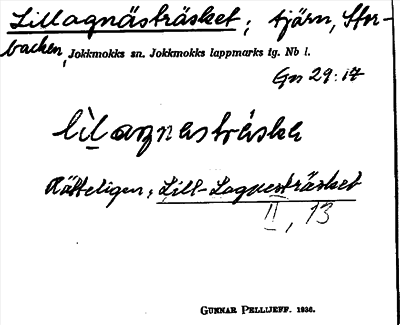 Lillagnästräsket; tjärn, Stor-
backen, Jokkmokks sn. Jokkmokks lappmarks tg. Nb l.
Gn 29:17
lìlagnastràska
Rätteligen: Lill-Lagnesträsket
II, 13
GUNNAR PELLIJEFF. 1936.